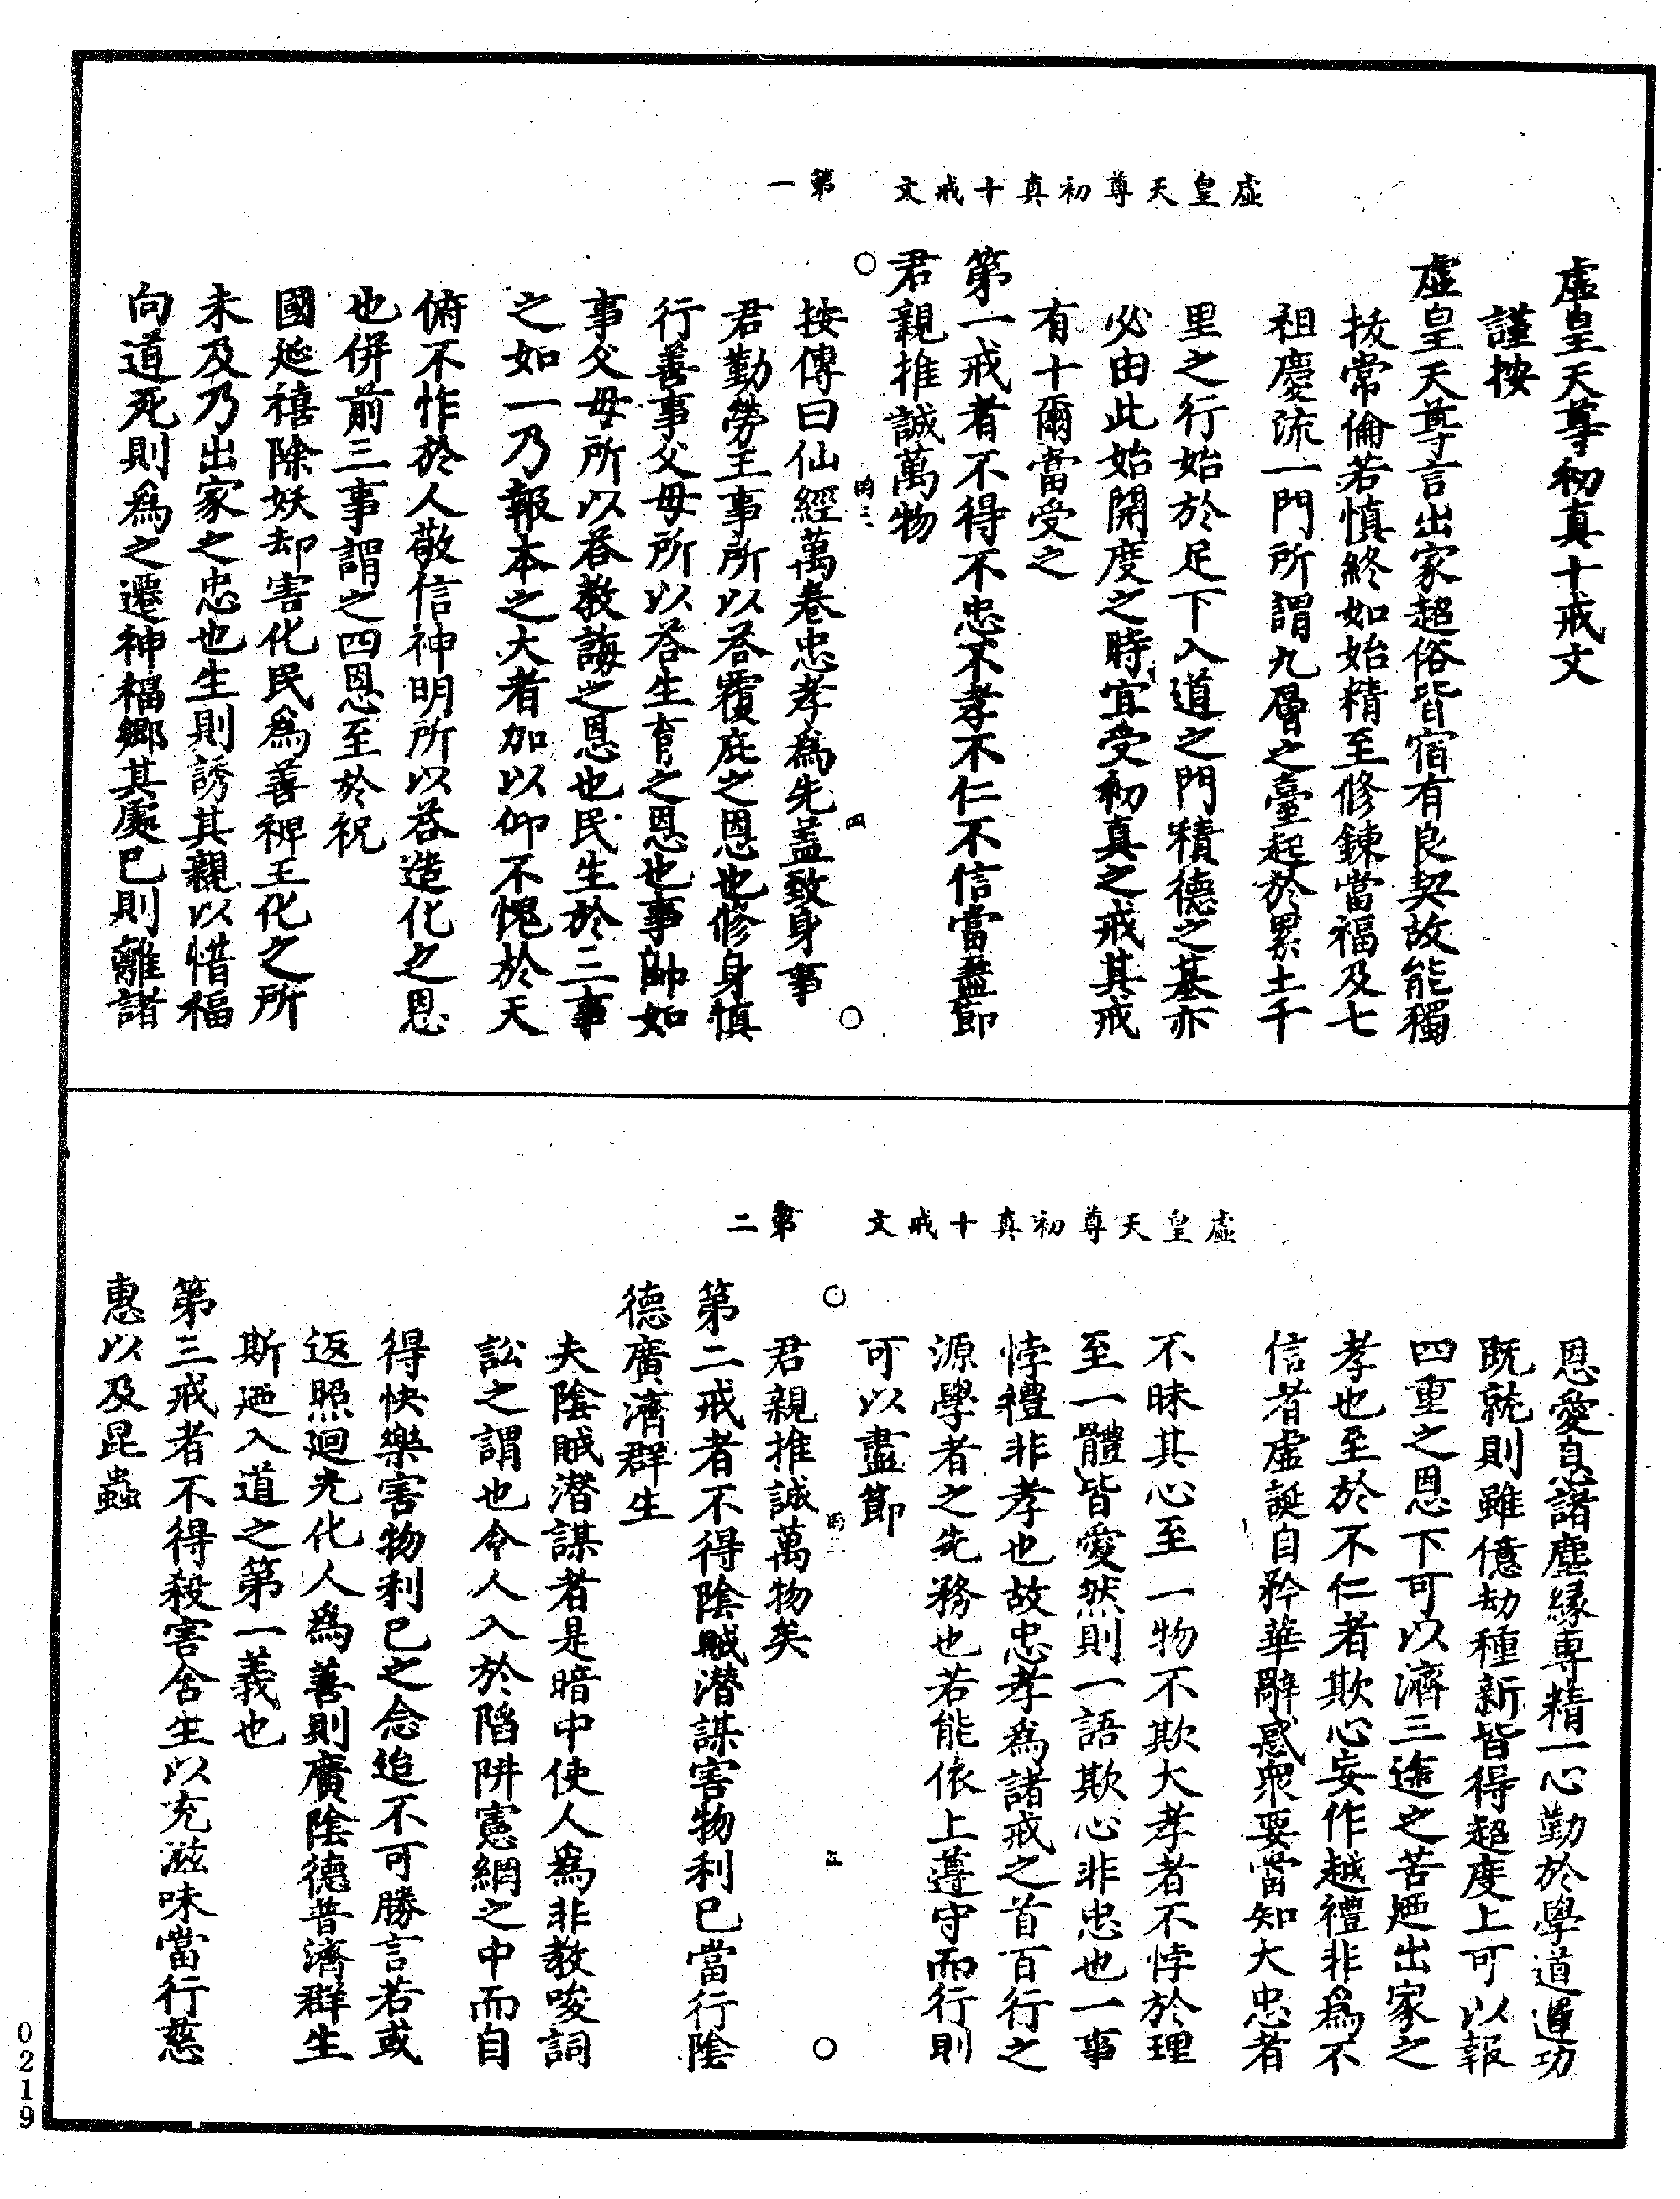 虛皇天尊初真十戒文　第一
虛皇天尊初真十戒文
謹按
虛皇天尊言出家超俗皆宿有良契故能獨
拔常倫若慎終如始精至修鍊當福及七
祖慶流一門所謂九層之臺起於累土千
里之行始於足下入道之門積德之基亦
必由此始開度之時宜受初真之戒其戒
有十爾當受之
第一戒者不得不忠不孝不仁不信當盡節
君親推誠萬物
按傳曰仙經萬卷忠孝為先蓋致身事
君勤勞王事所以荅覆庇之恩也修身慎
行善事父母所以荅生育之恩也事師如
事父母所以荅教誨之恩也民生於三事
之如一乃報本之大者加以仰不愧於天
俯不怍於人敬信神明所以荅造化之恩
也併前三事謂之四恩至於祝
國延禧除妖却害化民為善裨王化之所
未及乃出家之忠也生則誘其親以惜福
向道死則為之遷神福鄉其處已則離諸
虛皇天尊初真十戒文　第二
恩愛息諸塵緣專精一心勤於學道道功
既就則雖億劫種新皆得超度上可以報
四重之恩下可以濟三途之苦廼出家之
孝也至於不仁者欺心妄作越禮非為不
信者虛誕自矜華辭惑衆要當知大忠者
不昧其心至一物不欺大孝者不悖於理
至一體皆愛然則一語欺心非忠也一事
悖禮非孝也故忠孝為諸戒之首百行之
源學者之先務也若能依上遵守而行則
可以盡節
君親推誠萬物矣
第二戒者不得陰賊潛謀害物利已當行陰
德廣濟群生
夫陰賊潛謀者是暗中使人為非教唆詞
訟之謂也令人入於陷阱憲網之中而自
得快樂害物利已之念迨不可勝言若或
返照迴光化人為善則廣陰德普濟群生
斯廼入道之第一義也
第三戒者不得殺害含生以充滋味當行慈
惠以及昆蟲
0219